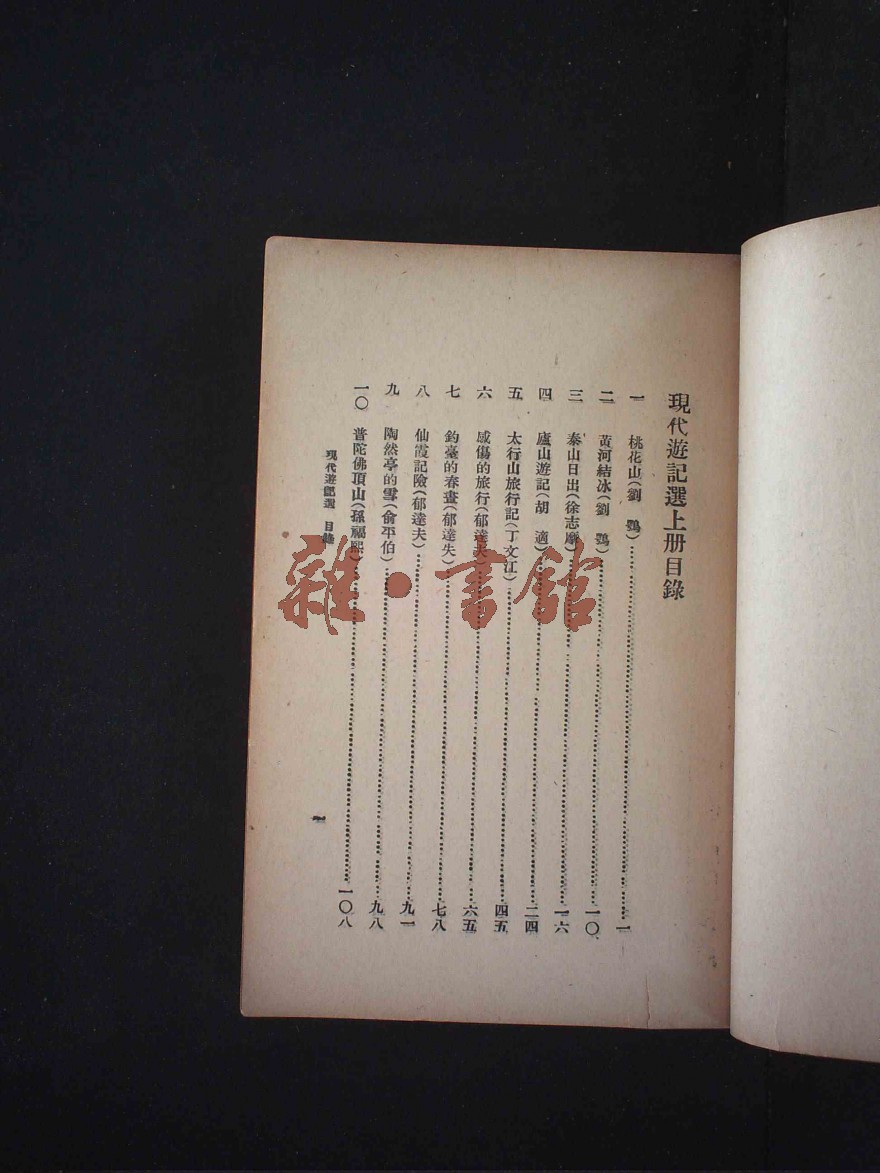 現代遊記選上册目錄
一 桃花山(劉 鶚)…………一
二 黃河結冰(劉 鶚)…………一〇
三 泰山日出(徐志摩)…………一六
四 廬山遊記(胡 適)…………二四
五 太行山旅行記(丁文江)…………四五
六 感傷的旅行(郁達夫)…………六五
七 釣臺的春晝(郁達夫)…………七八
八 仙霞記險(郁達夫)…………九一
九 陶然亭的雪(俞平伯)…………九八
一〇 普陀佛頂山(孫福熙)…………一〇八
現代遊記選 目錄
一
雜·書館